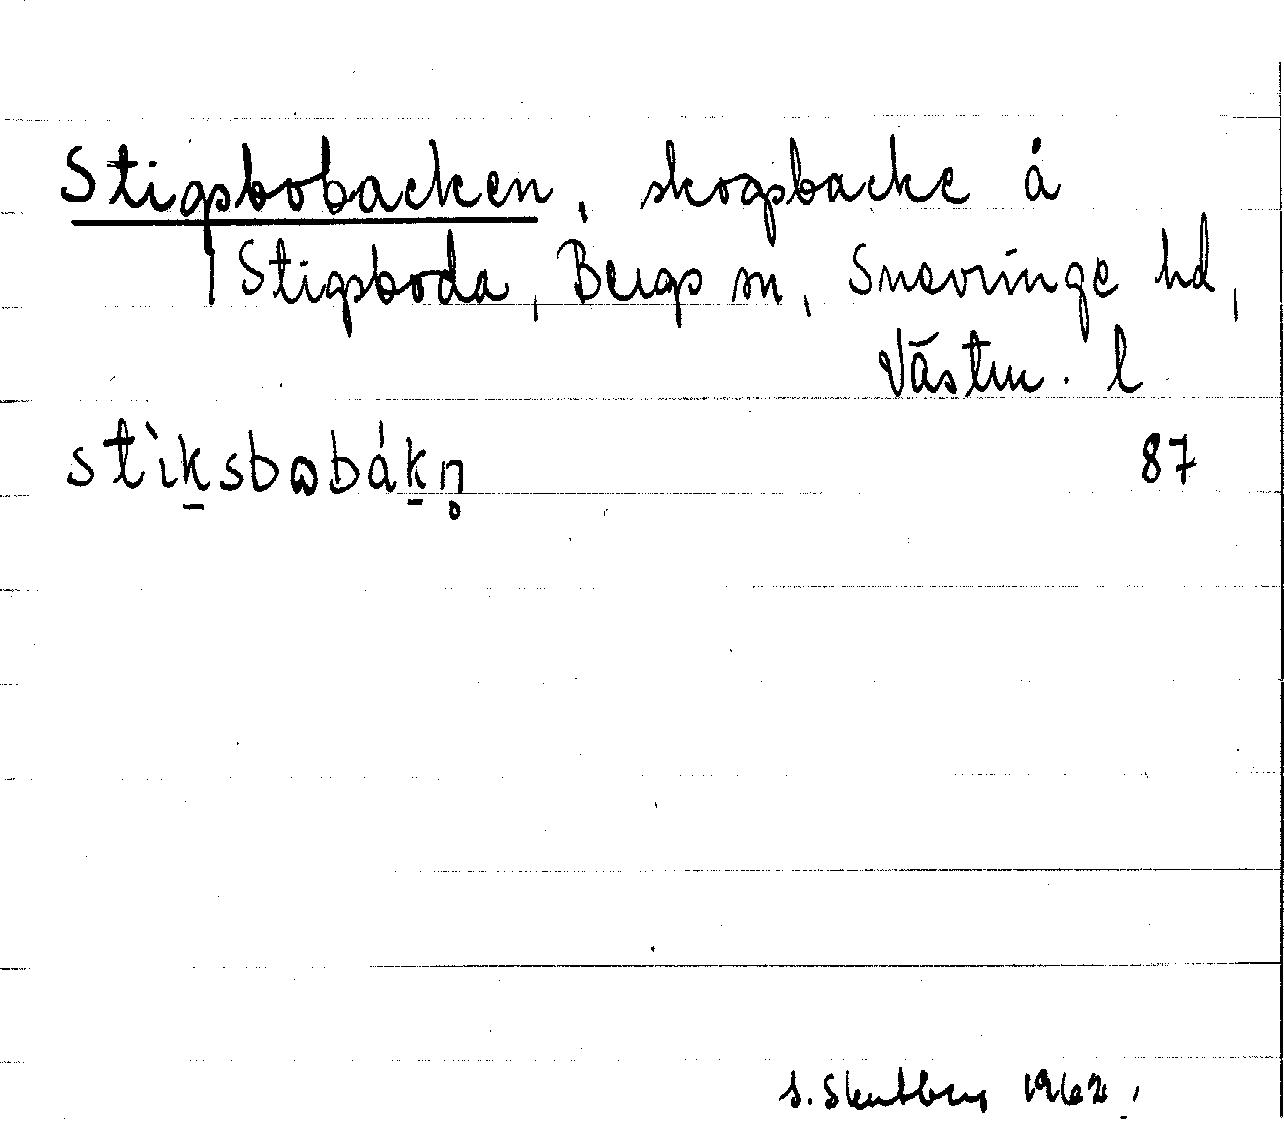 Stigsbobacken, skogsbacke å
Stigsboda, Bergs sn, Snevringe hd,
Västm. l
stìk̠sbωbák̠n̥ 87
S. 1962